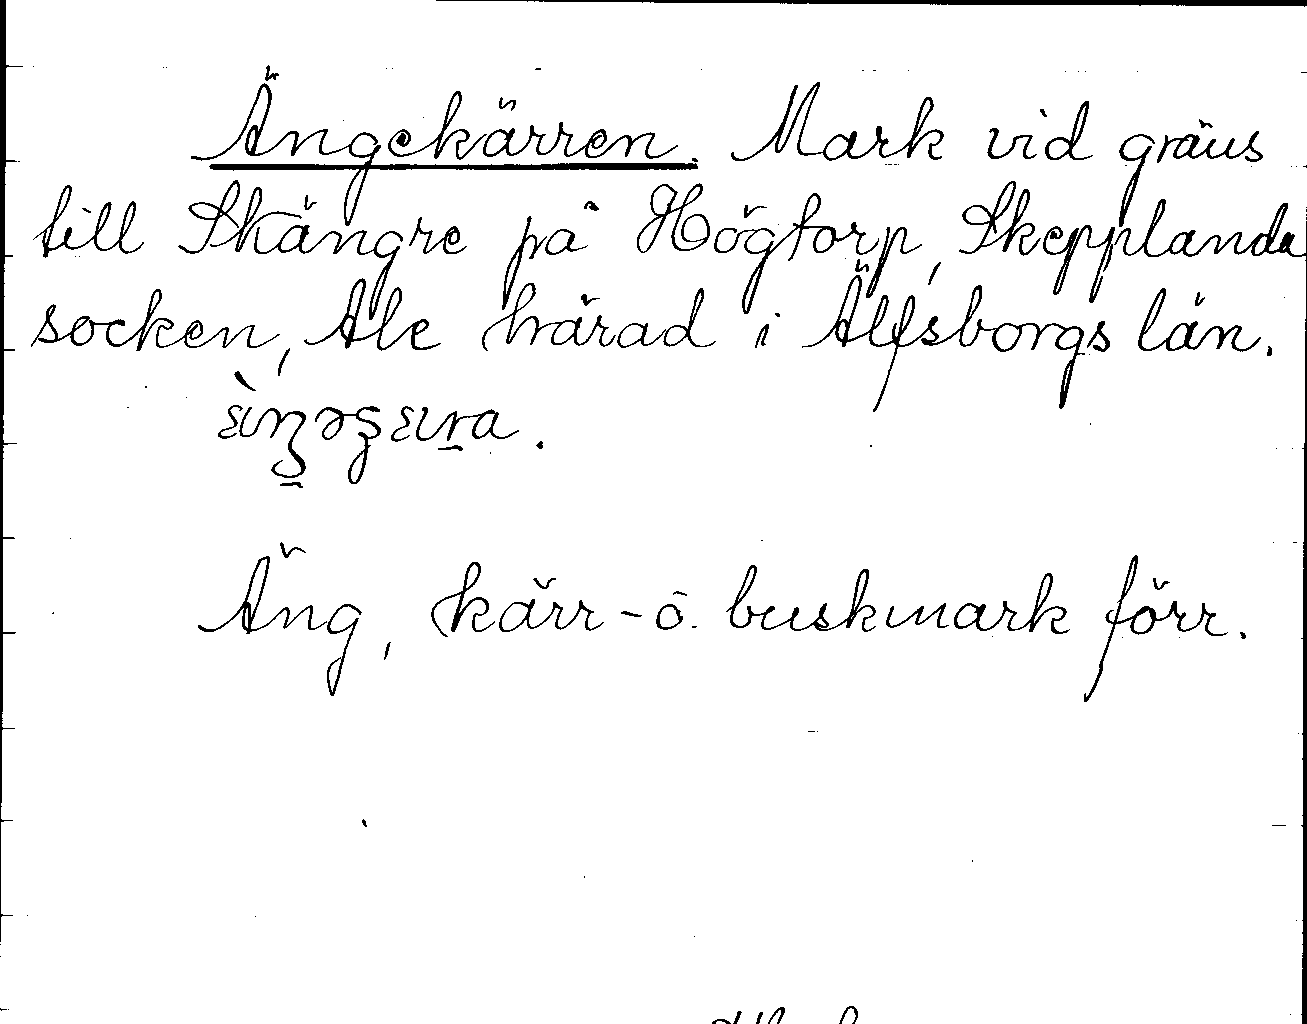 Ängekärren. Mark vid gräns
till Skängre på Högtorp, Skepplanda
socken, Ale härad i Älfsborgs län.
Äng, kärr- o. buskmark förr.